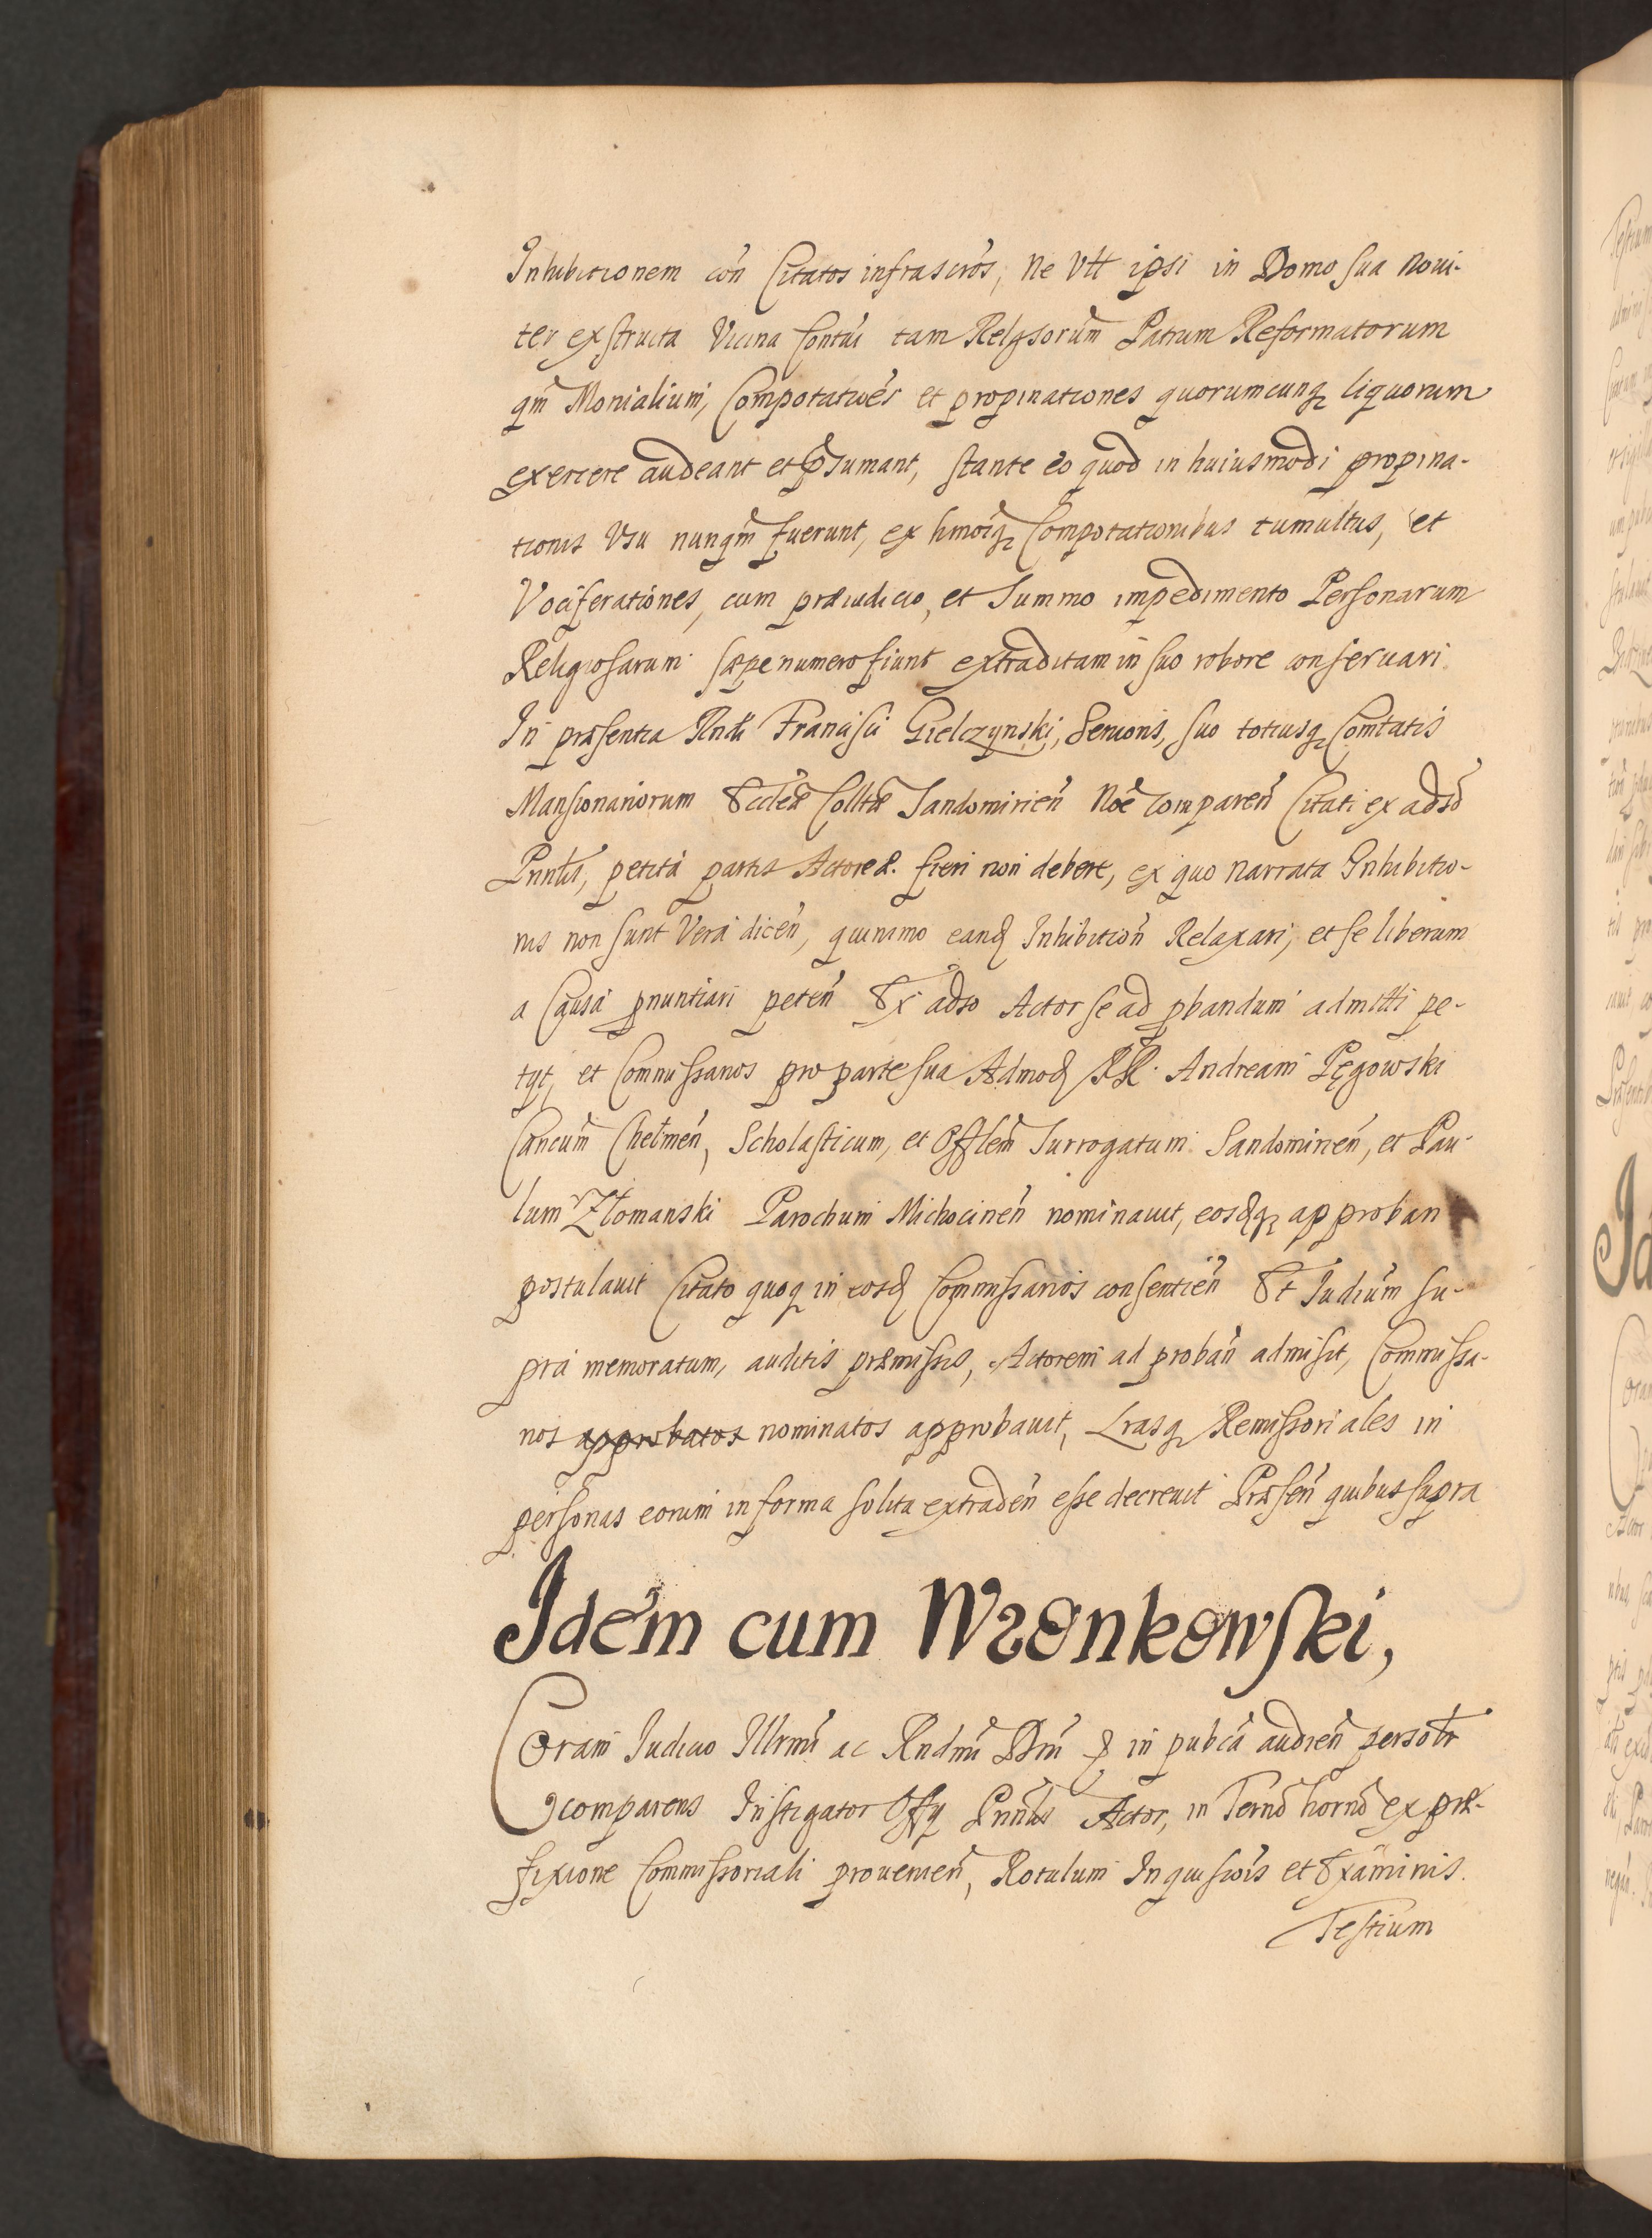 Inhibitionem cōn Citatos infrascr̄os, ne Vtt ipsi in Domo sua noui-
ter exstructa Vicina Contui tam Relgsorum̄ Patrum Reformatorum
qm̄ Monialium, Compotatiōes et propinationes quorumcunq liquorum
exercere audeant et p̄sumant, stante eo quod in huiusmodi propina-
tionis Vsu nunqm̄ fuerunt, ex hmōiq Compotationibus tumultus, et
Vociferationes, cum præiudicio, et Summo impedimento Personarum
Religiosarum sæpenumero fiunt extraditam in suo robore conseruari
In præsentia Rndi Francisci Gielczynski, Senioris, suo totiusq Com̄tatis
Mansionariorum Eccleæ Colltæ Sandomirien̄ Noē comparen̄ Citati ex adso
Pnntis, petita partis Actoreæ. fieri non debere, ex quo narrata Inhibitio-
nis non sunt Vera dicen̄, quinimo eand Inhibition̄ Relaxari, et se liberum
a Causa pnuntiari peten̄ Ex adso Actor se ad pbandum admitti pe-
tyt, et Commissarios pro parte sua Admod RR. Andream Pęgowski
Cancum̄ Chełmen̄, Scholasticum, et Offlem̄ Surrogatum Sandomirien̄, et Pau-
lum Złomanski Parochum Michocinen̄ nominauit, eosdq approban
postulauit Citato quoq in eosd Commissarios consentien̄ Et Iudium̄ su-
pra memoratum, auditis præmissis, Actorem ad proban̄ admisit, Commissa-
rios approbatos nominatos approbauit, Lrasq Remissoriales in
personas eorum in forma solita extraden̄ esse decreuit Præsen̄ quibus supra
Idem cum Wronkowski,
Coram Iudicio Illrmi ac Rndmi Dn̄i & in pubca audien̄ persolr
comparens Instigator Offy Pnntis Actor, in Termō hornō ex præ-
fixione Commissoriali prouenien̄, Rotulum Inquisiōis et Examinis.
Testium